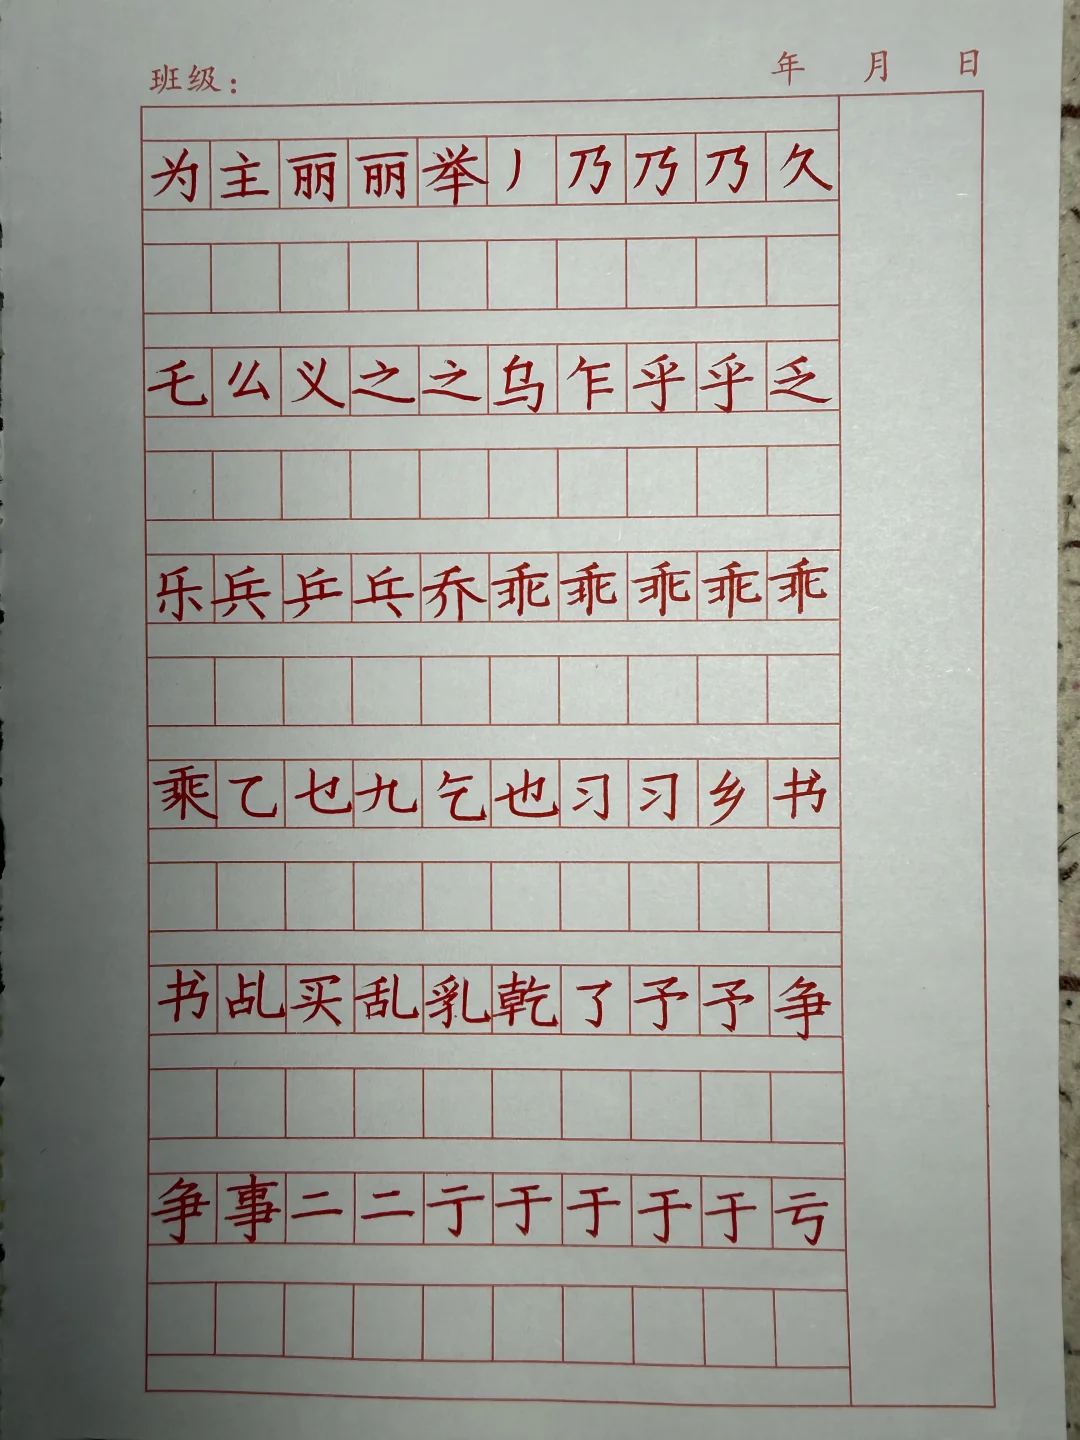 班级： 年 月 日
为主丽丽举丿乃乃乃久
乇么义之之乌乍乎乎乏
乐兵乒乓乔乖乖乖乖乖
乘乙乜九乞也习习乡书
书乩买乱乳乾了予予争
争事二二亍于于于于亏